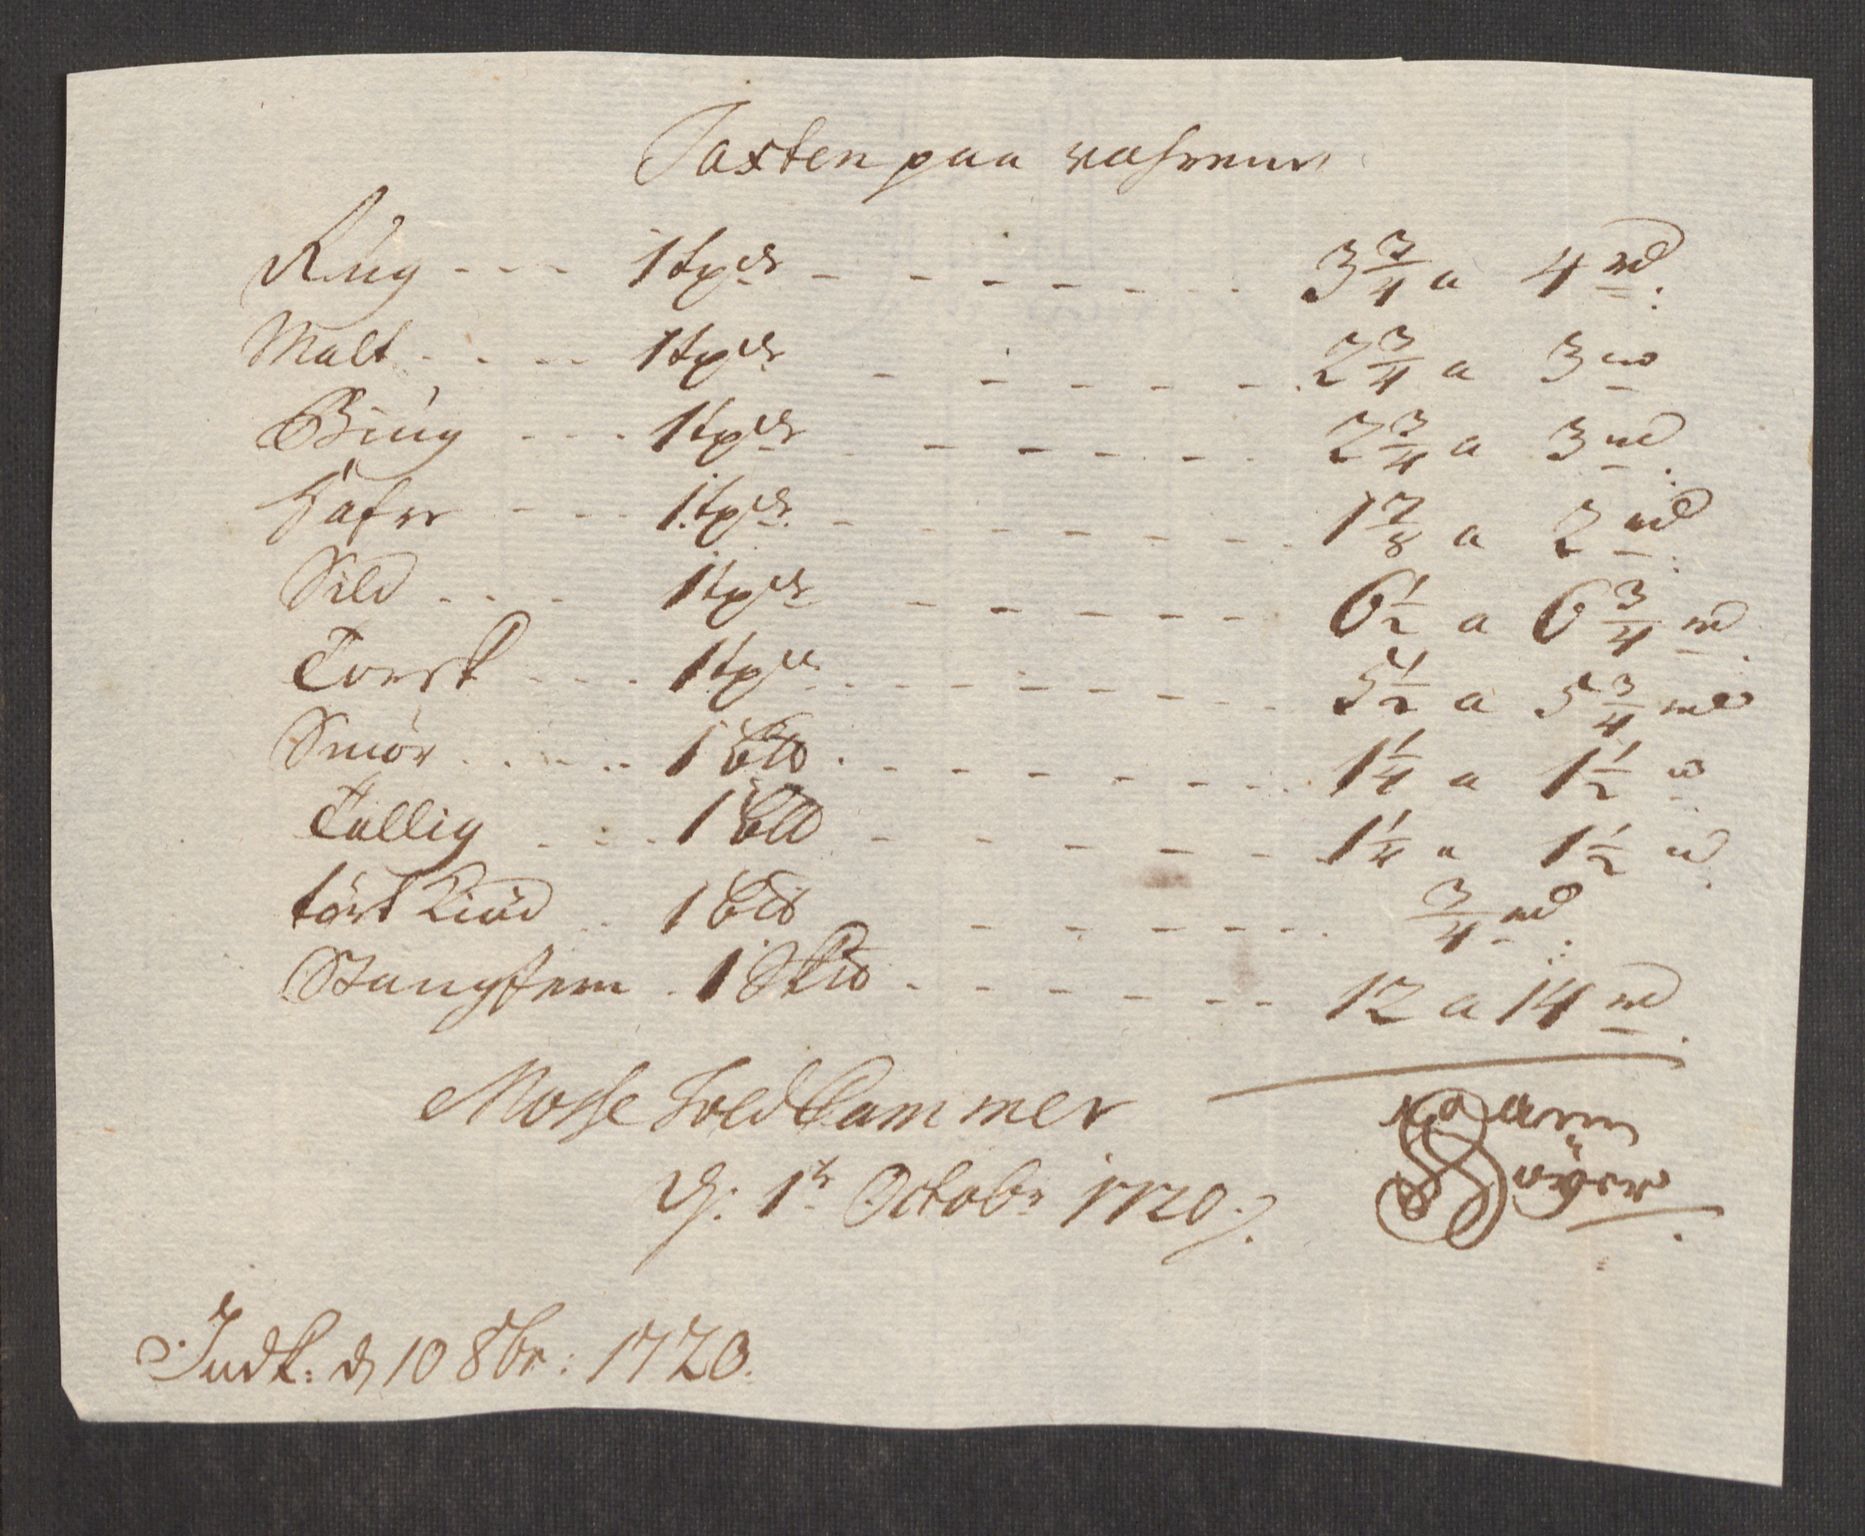 Taxten paa vahrene
Rug - - - 1 tpde - - - - - - 3 3/4 a 4 rd.
Malt - - - - 1 tpde - - - - - 2 3/4 a 3 rd
Biug - - - 1 tpde - - - - - 2 3/4 a 3 rd.
Hafre - - - 1 tpde - - - - - - 1 7/8 a 2 rd.
Sild - - - 1 tpde - - - - - 6 1/2 a 6 3/4 rd.
Torsk - - - 1 tpde - - - - - - 5 1/2 a 5 3/4 rd
Smör - - - - 1 - - - - - - 1 1/4 a 1 1/2 rd
Tallig - - - 1 - - - - - 1 1/4 a 1 1/2 rd.
tört Kiöd - 1 - - - - - 3/4 rd.
Stangfern 1 Skd - - - - - - 12 a 14 rd.
Mosse Told Cammer
d: 1te Octobr 1720
Indk: d 10 8br: 1720.